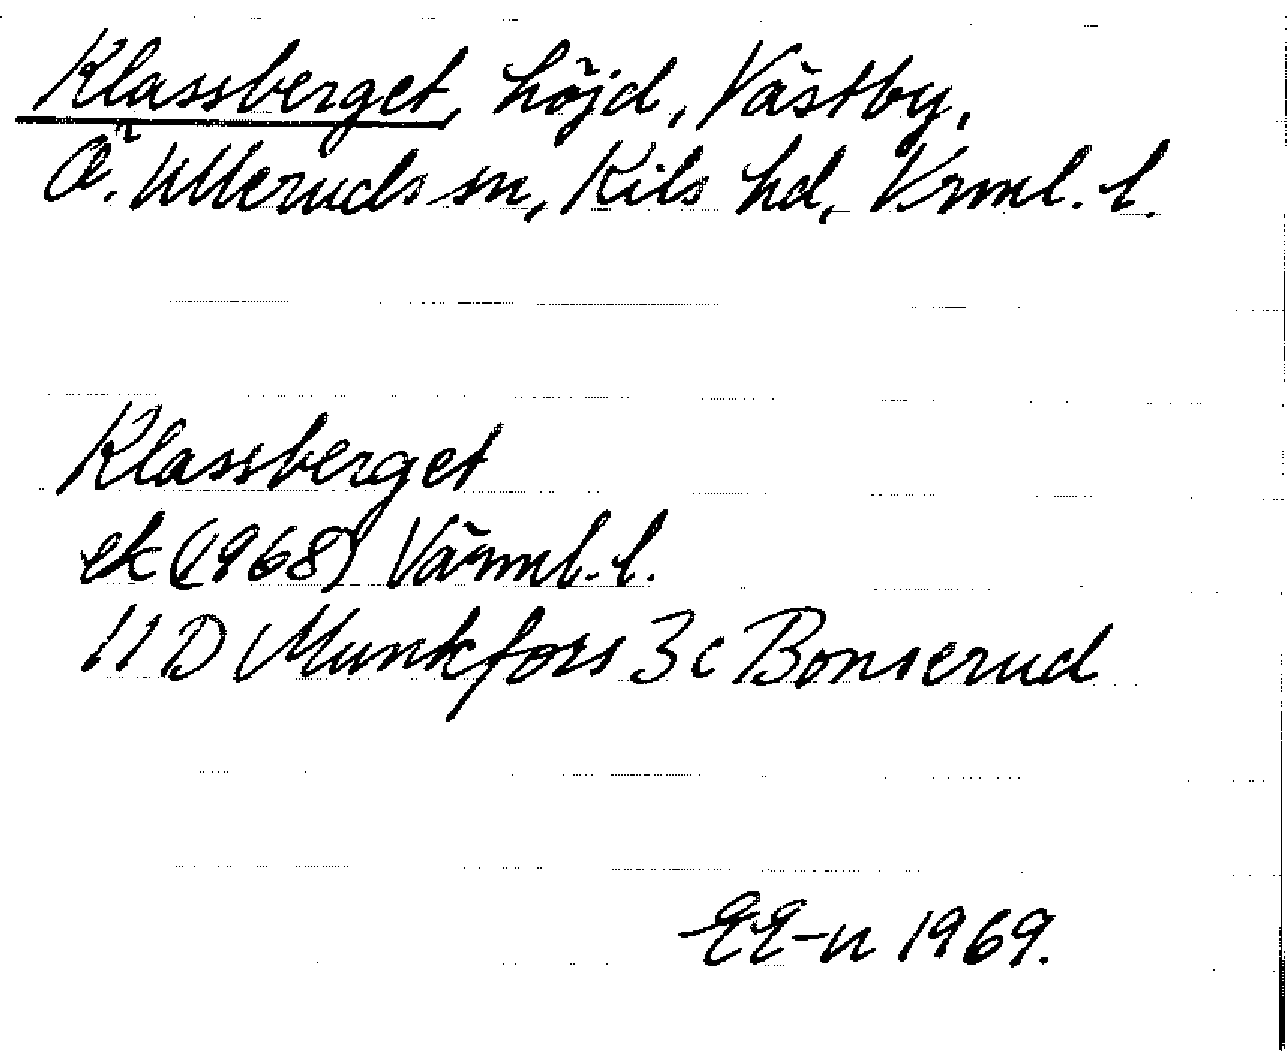 Klassberget, höjd, Västby,
Ö. Ulleruds sn, Kils hd, Vrml. l.
Klassberget
ek (1968) Värml. l.
11 D Munkfors 3c Bonserud
EE-n 1969.